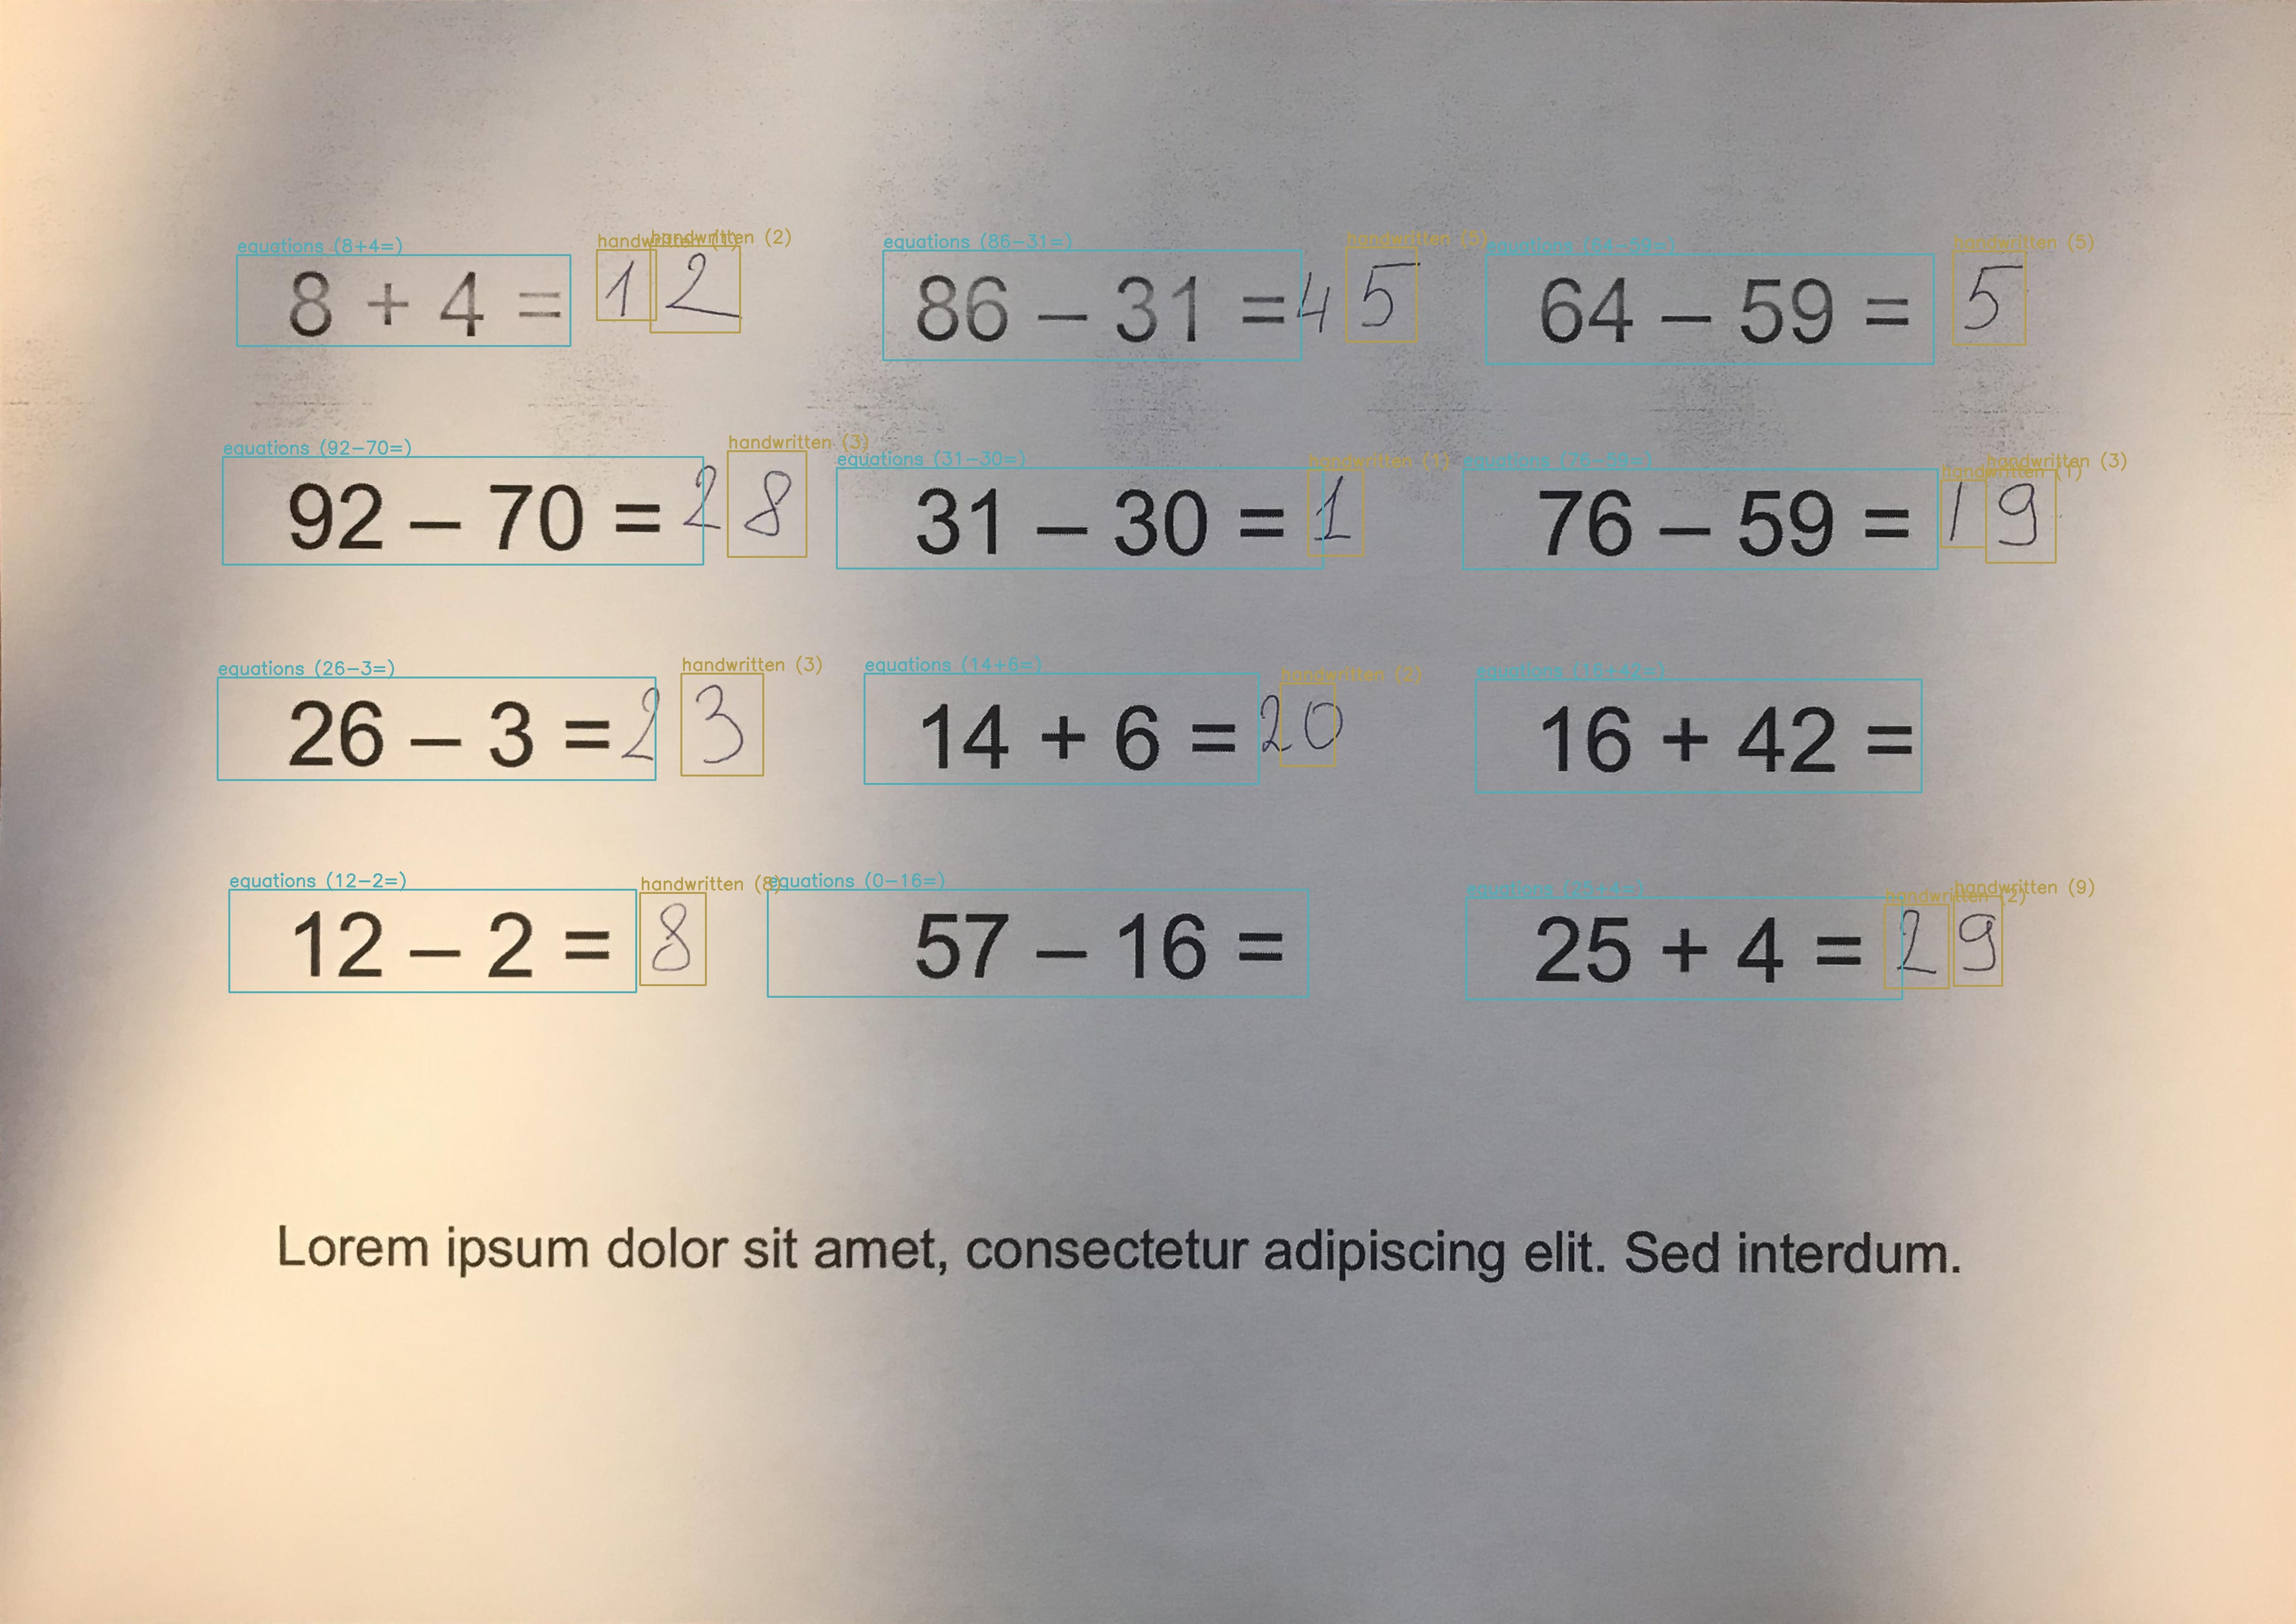 equations (8+4=) handwritten (1) handwritten (2) equations (86-31=) handwritten (5) equations (64-59=) handwritten (5)
8 + 4 = 12 86 – 31 = 45 64 – 59 = 5
equations (92-70=) handwritten (3) equations (31-30=) handwritten (1) equations (76-59=) handwritten (1) handwritten (3)
92 – 70 = 28 31 – 30 = 1 76 – 59 = 19
equations (26-3=) handwritten (3) equations (14+6=) handwritten (2) equations (16+42=)
26 – 3 = 23 14 + 6 = 20 16 + 42 =
equations (12-2=) handwritten (8) equations (0-16=) equations (25+4=) handwritten (2) handwritten (9)
12 – 2 = 8 57 – 16 = 25 + 4 = 29
Lorem ipsum dolor sit amet, consectetur adipiscing elit. Sed interdum.